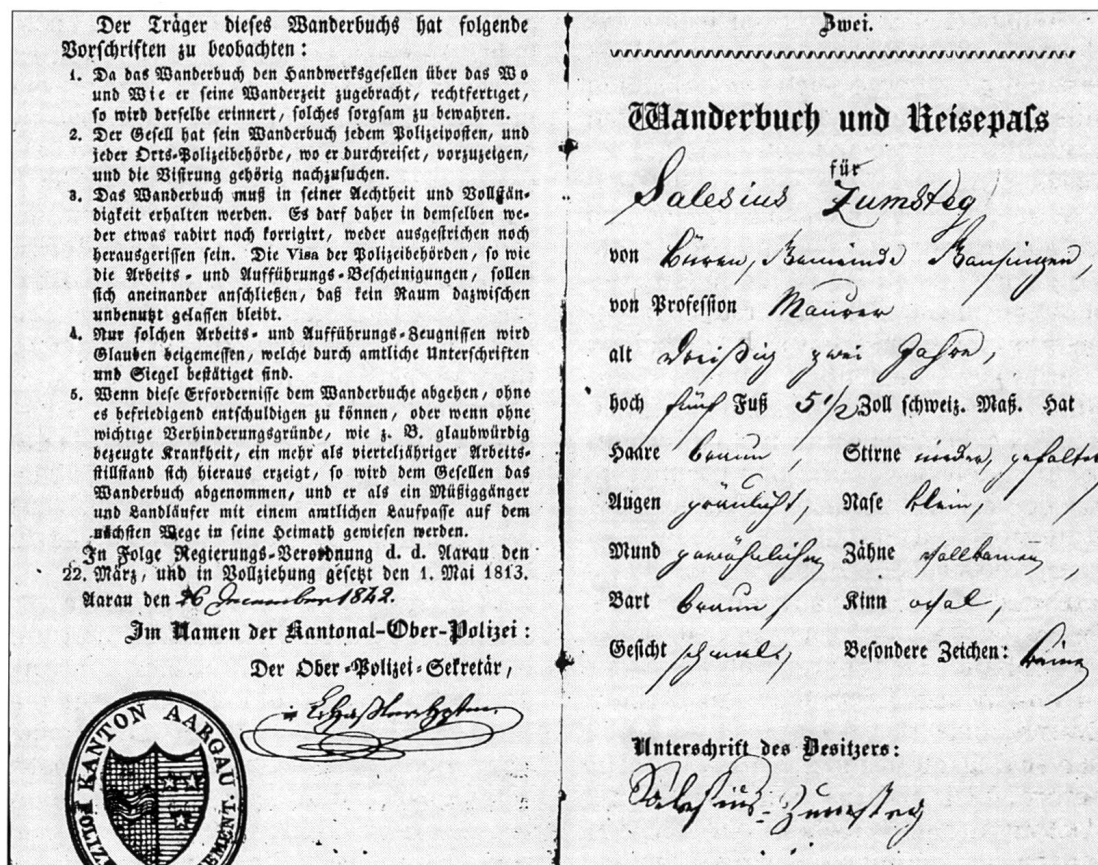 Der Träger dieses Wanderbuchs hat folgende
Vorschriften zu beobachten:
1. Da das Wanderbuch den Handwerksgesellen über das Wo
und Wie er seine Wanderzeit zugebracht, rechtfertiget,
so wird derselbe erinnert, solches sorgsam zu bewahren.
2. Der Gesell hat sein Wanderbuch jedem Polizeiposten, und
jeder Orts-Polizeibehörde, wo er durchreiset, vorzuzeigen,
und die Visirung gehörig nachzusuchen.
3. Das Wanderbuch muß in seiner Aechtheit und Vollstän-
digkeit erhalten werden. Es darf daher in demselben we-
der etwas radirt noch korrigirt, weder ausgestrichen noch
herausgerissen sein. Die Visa der Polizeibehörden, so wie
die Arbeits- und Aufführungs-Bescheinigungen, sollen
sich aneinander anschließen, daß kein Raum dazwischen
unbenutzt gelassen bleibt.
4. Nur solchen Arbeits- und Aufführungs-Zeugnissen wird
Glauben beigemessen, welche durch amtliche Unterschriften
und Siegel bestätiget sind.
5. Wenn diese Erfordernisse dem Wanderbuche abgehen, ohne
es befriedigend entschuldigen zu können, oder wenn ohne
wichtige Verhinderungsgründe, wie z. B. glaubwürdig
bezeugte Krankheit, ein mehr als vierteljähriger Arbeits-
stillstand sich hieraus erzeigt, so wird dem Gesellen das
Wanderbuch abgenommen, und er als ein Müßiggänger
und Landläufer mit einem amtlichen Laufpasse auf dem
nächsten Wege in seine Heimath gewiesen werden.
In Folge Regierungs-Verordnung d. d. Aarau den
22. März, und in Vollziehung gesetzt den 1. Mai 1813.
Aarau den 26 December 1842.
Im Namen der Kantonal-Ober-Polizei:
Der Ober-Polizei-Sekretär,
KANTON AARGAU
Zwei.
Wanderbuch und Reisepaß
für
Salesius Zumsteg
von Büren, Gemeinde Gansingen,
von Profession Maurer
alt dreißig zwei Jahre,
hoch fünf Fuß 5 1/2 Zoll schweiz. Maß. Hat
Haare braun, Stirne nieder, gefaltet
Augen gräulicht, Nase klein,
Mund gewöhnlichen Zähne vollkommen,
Bart braun, Kinn oval,
Gesicht schmal, Besondere Zeichen: keine
Unterschrift des Besitzers:
Salesius Zumsteg